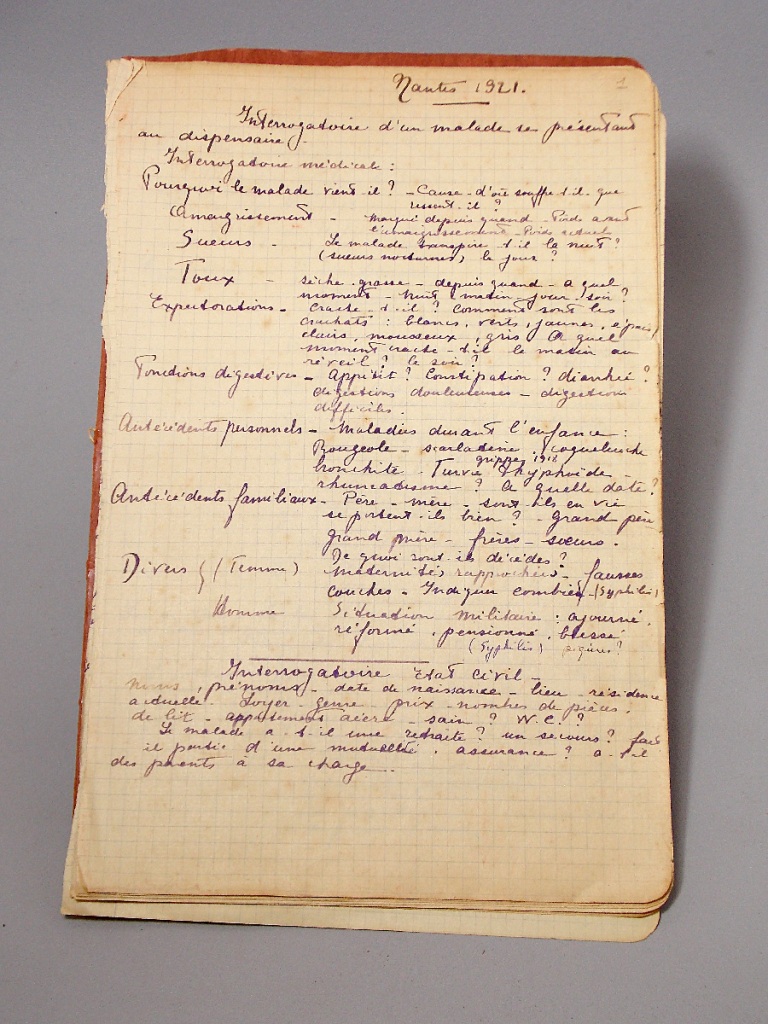 Nantes 1921.
1
Interrogatoire d'un malade se présentant
au dispensaire.
Interrogatoire médicale :
Pourquoi le malade vient-il ? - Cause - d'où souffre t-il - que
ressent-il ?
Amaigrissement - maigri depuis quand - Poids avant
l'amaigrissement - Poids actuel
Sueurs - Le malade transpire-t-il la nuit ?
(sueurs nocturnes) le jour ?
Toux - sèche - grasse - depuis quand - a quel
moment - nuit - matin - jour - soir ?
Expectorations - crache-t-il ? Comment sont les
crachats : blancs, verts, jaunes, épais,
clairs, mousseux, gris A quel
moment crache-t-il le matin au
réveil ? le soir ?
Fonctions digestives - Appétit ? Constipation ? diarrhée ?
digestions douloureuses - digestions
difficiles.
Antécédents personnels - Maladies durant l'enfance :
Rougeole - scarlatine, coqueluche
grippe 1918
bronchite. Fièvre thyphoïde -
rhumatisme ? A quelle date ?
Antécédents familiaux - Père - mère - sont-ils en vie
se portent-ils bien ? - grand père
grand mère - frères - sœurs.
De quoi sont-ils décédés ?
Divers { (Femme) maternités rapprochées - fausses
couches - Indiquer combien - (Syphilis)
Homme Situation militaire : ajourné,
réformé, pensionné, blessé
(Syphilis)
Interrogatoire Etat Civil -
noms, prénoms - date de naissance - lieu - résidence
actuelle. Loyer - genre - prix - nombres de pièces,
de lit - appartement aéré - sain ? W.C. ?
Le malade a-t-il une retraite ? un secours ? fait
il partie d'une mutualité, assurance ? a-t-il
des parents à sa charge.